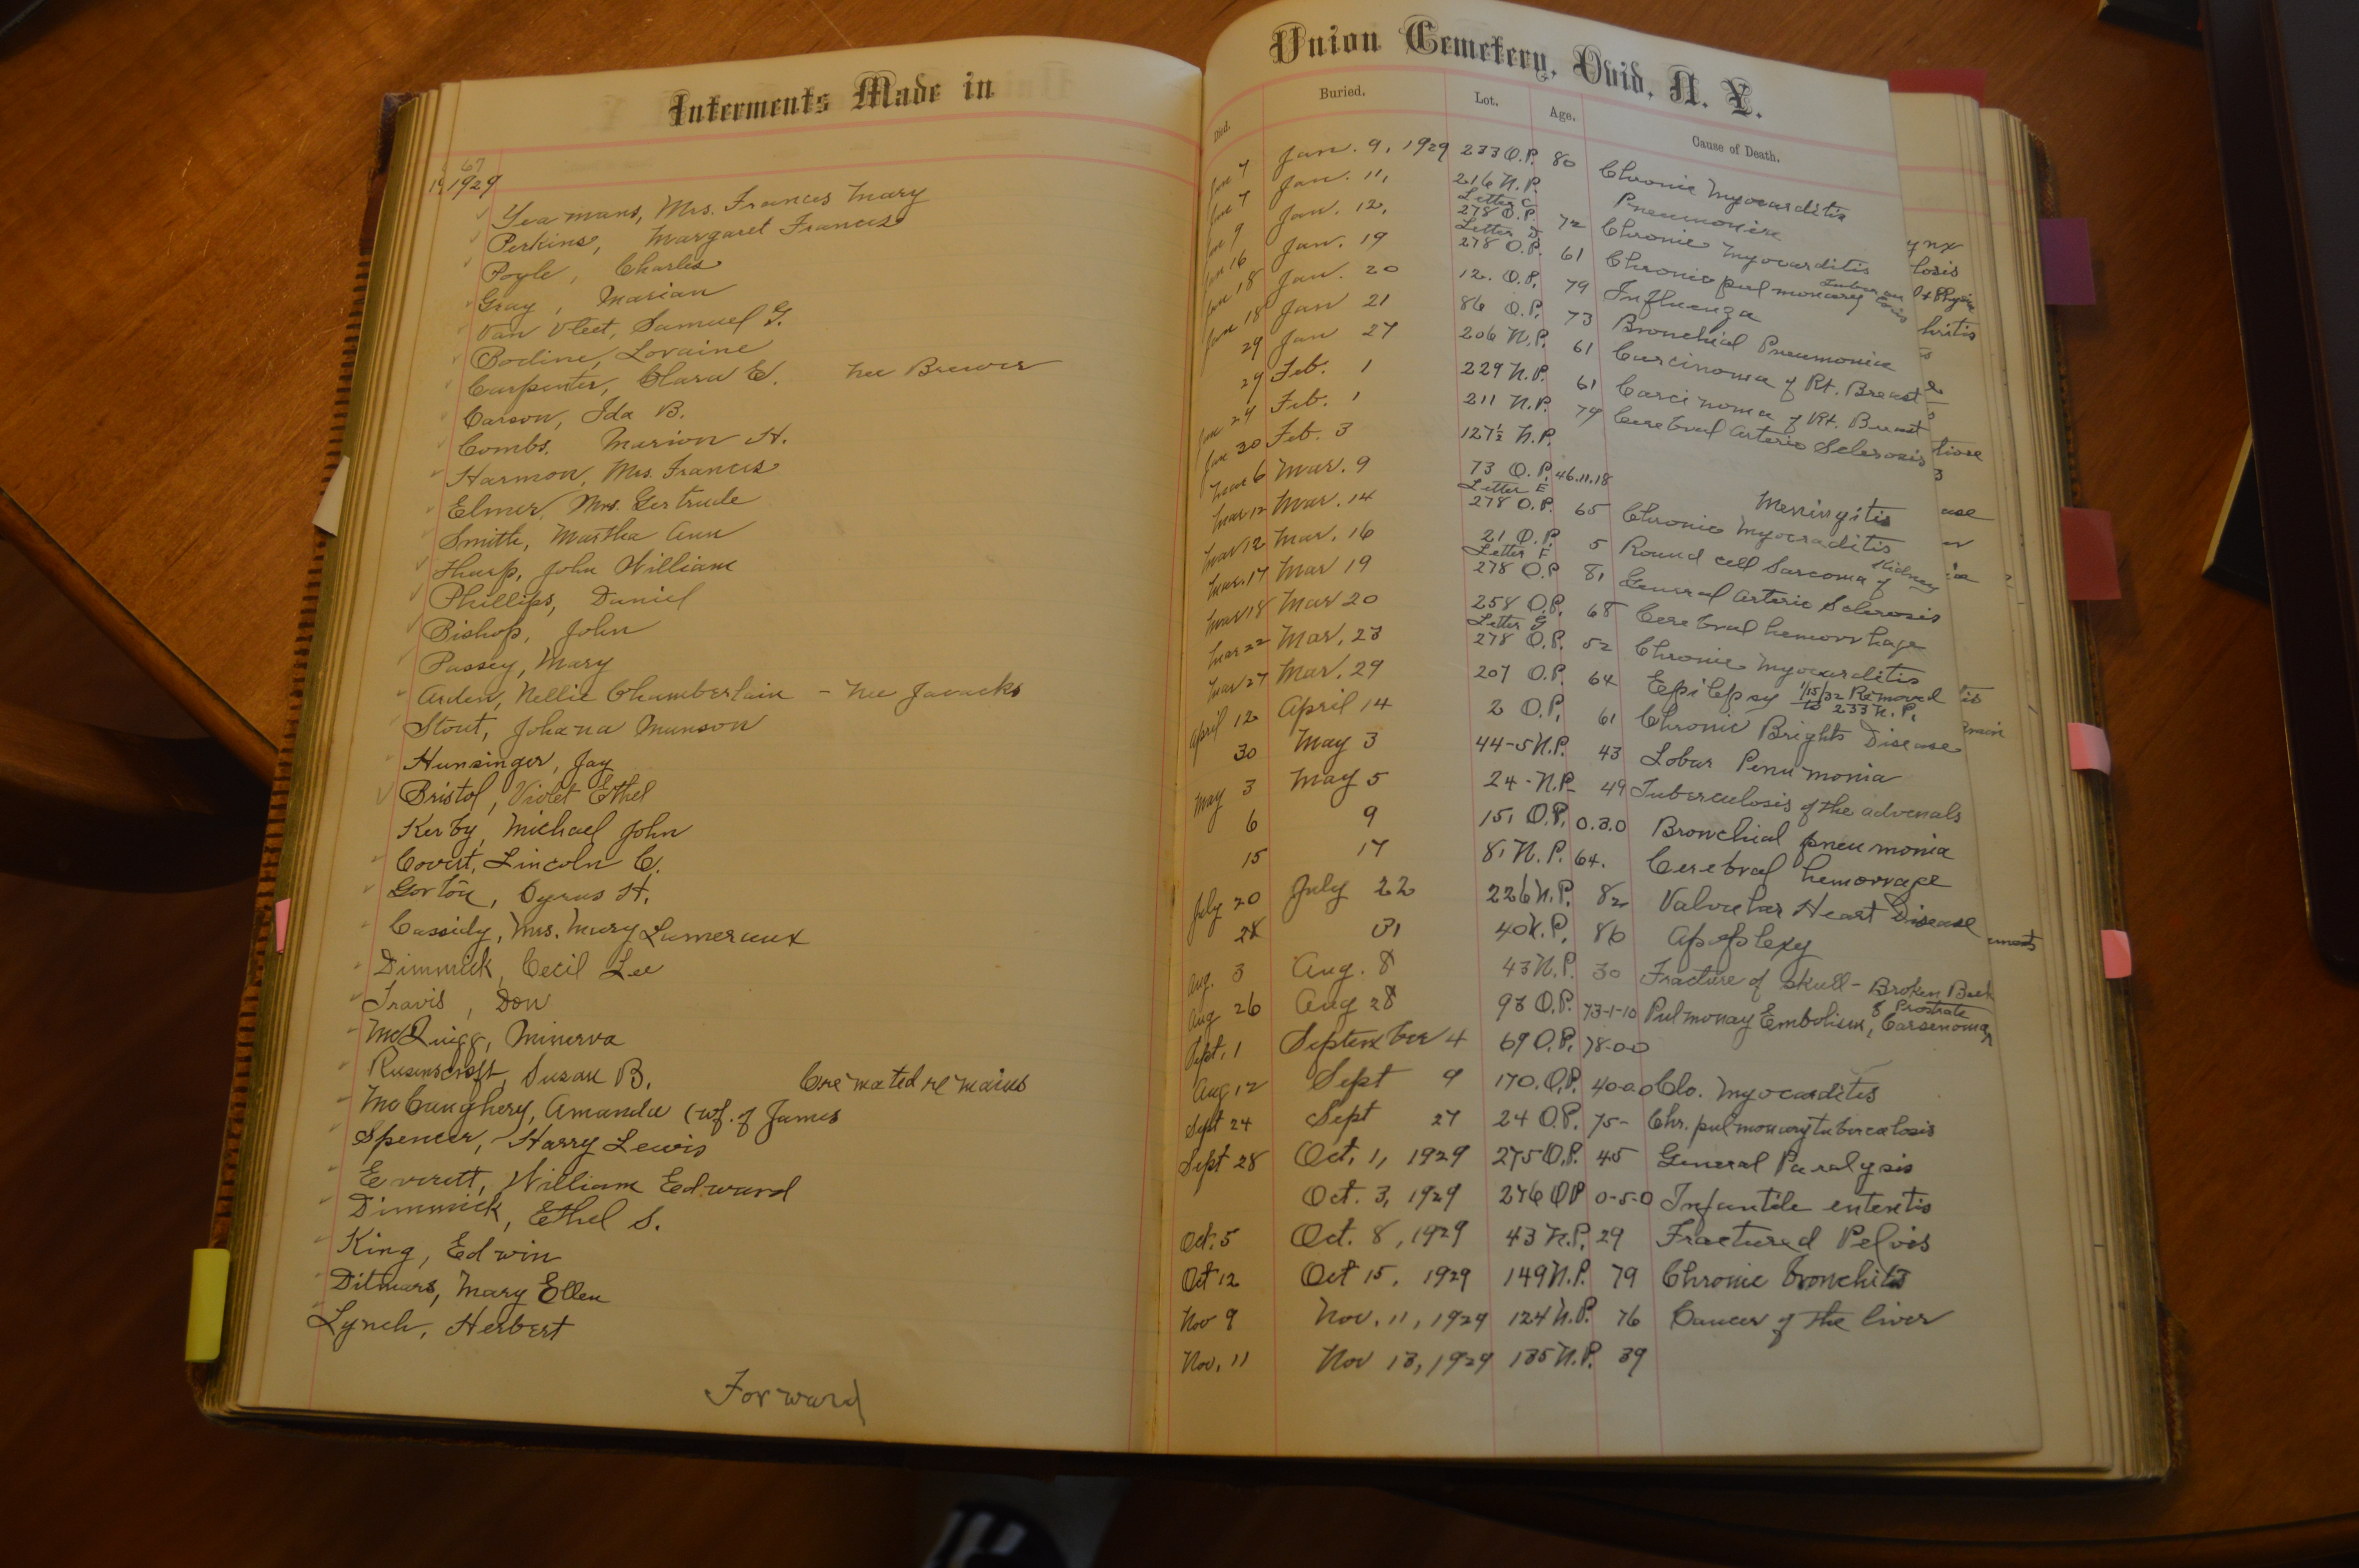 Interments Made in
67
1929
Yeamans, Mrs. Frances Mary
Perkins, Margaret Frances
Poyle, Charles
Gray, Marian
Van Vleet, Samuel G.
Bodine, Loraine
Carpenter, Clara E. nee Brewer
Carson, Ida B.
Combs, Marion H.
Harmon, Mrs. Frances
Elmer, Mrs. Gertrude
Smith, Martha Ann
Tharp, John William
Phillips, Daniel
Bishop, John
Passey, Mary
Arden, Nellie Chamberlain - nee Javacks
Stout, Johana Munson
Hunsinger, Jay
Bristol, Violet Ethel
Kerby, Michael John
Covert, Lincoln C.
Gorton, Cyrus H.
Cassidy, Mrs. Mary Lameraux
Dimmick, Cecil Lee
Travis, Don
McQuigg, Minerva
Susan B. Cremated remains
McCaughery, Amanda (wf. of James
Spencer, Harry Lewis
Everett, William Edward
Dimmick, Ethel S.
King, Edwin
Ditmars, Mary Ellen
Lynch, Herbert
Forward
Union Cemetery, Ovid, N. Y.
Died. Buried. Lot. Age. Cause of Death.
Jan 7 Jan. 9, 1929 233 O.P. 80 Chronic Myocarditis
Jan 7 Jan. 11, 216 N.P. Pneumonia
Jan 9 Jan. 12, Letter C 278 O.P. 72 Chronic Myocarditis
Jan 16 Jan. 19 Letter D 278 O.P. 61 Chronic pulmonary
Jan 18 Jan. 20 12. O.P. 79 Influenza
Jan 18 Jan 21 86 O.P. 73 Bronchial Pneumonia
29 Jan 27 206 N.P. 61 Carcinoma of Rt. Breast
29 Feb. 1 229 N.P. 61 Carcinoma of Rt. Breast
Jan 24 Feb. 1 211 N.P. 79 Cerebral Arterio Sclerosis
Jan 30 Feb. 3 127½ N.P.
Mar 6 Mar. 9 73 O.P. 46.11.18 Meningitis
Mar 12 Mar. 14 Letter E 278 O.P. 65 Chronic Myocraditis
Mar 12 Mar. 16 21 O.P. 5 Round cell Sarcoma of Kidney
Mar. 17 Mar 19 Letter F 278 O.P 81 General Arterio Sclerosis
Mar 18 Mar 20 258 O.P. 68 Cerebral hemorrhage
Mar 22 Mar. 23 Letter G 278 O.P. 52 Chronic Myocarditis
Mar 27 Mar. 29 207 O.P. 64 Epilepsy 1/15/32 Removed to 233 N.P.
April 12 April 14 2 O.P. 61 Chronic Brights Disease
30 May 3 44-5 N.P. 43 Lobar Penumonia
May 3 May 5 24-N.P- 49 Tuberculosis of the adrenals
6 9 151 O.P. 0.3.0 Bronchial pneumonia
15 17 81 N.P. 64. Cerebral hemorrage
July 20 July 22 226 N.P. 82 Valvular Heart Disease
28 31 40 N.P. 86 Apoplexy
Aug. 3 Aug. 8 43 N.P. 30 Fracture of skull - Broken Back
Aug 26 Aug 28 98 O.P. 73-1-10 Pulmonay Embolism, Carsenoma of Prostrate
Sept. 1 September 4 69 O.P. 78-0-0
Aug 12 Sept 9 170. O.P. 40-0-0 Clo. Myocarditis
Sept 24 Sept 27 24 O.P. 75- Chr. pulmonary tuberculosis
Sept 28 Oct. 1, 1929 275 O.P. 45 General Paralysis
Oct. 3, 1929 276 OP 0-5-0 Infantile enteretis
Oct. 5 Oct. 8, 1929 43 N.P. 29 Fractured Pelvis
Oct 12 Oct 15, 1929 149 N.P. 79 Chronic bronchitis
Nov 9 Nov. 11, 1929 124 N.P. 76 Cancer of the liver
Nov. 11 Nov 13, 1929 135 N.P. 39